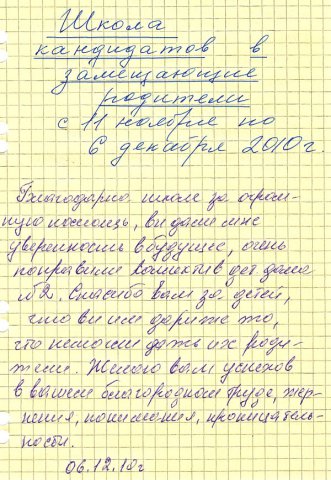 Школа
кандидатов в
замещающие
родители
с 11 ноября по
6 декабря 2010г.
Благодарна школе за огром-
ную помощь, вы дали мне
уверенность в будущее, очень
понравился коллектив дет дома
№2. Спасибо вам за детей,
что вы им дарите то,
что не могли дать их роди-
тели. Желаю вам успехов
в вашем благородном труде, тер-
пения, понимания, проницатель-
ности.
06.12.10г